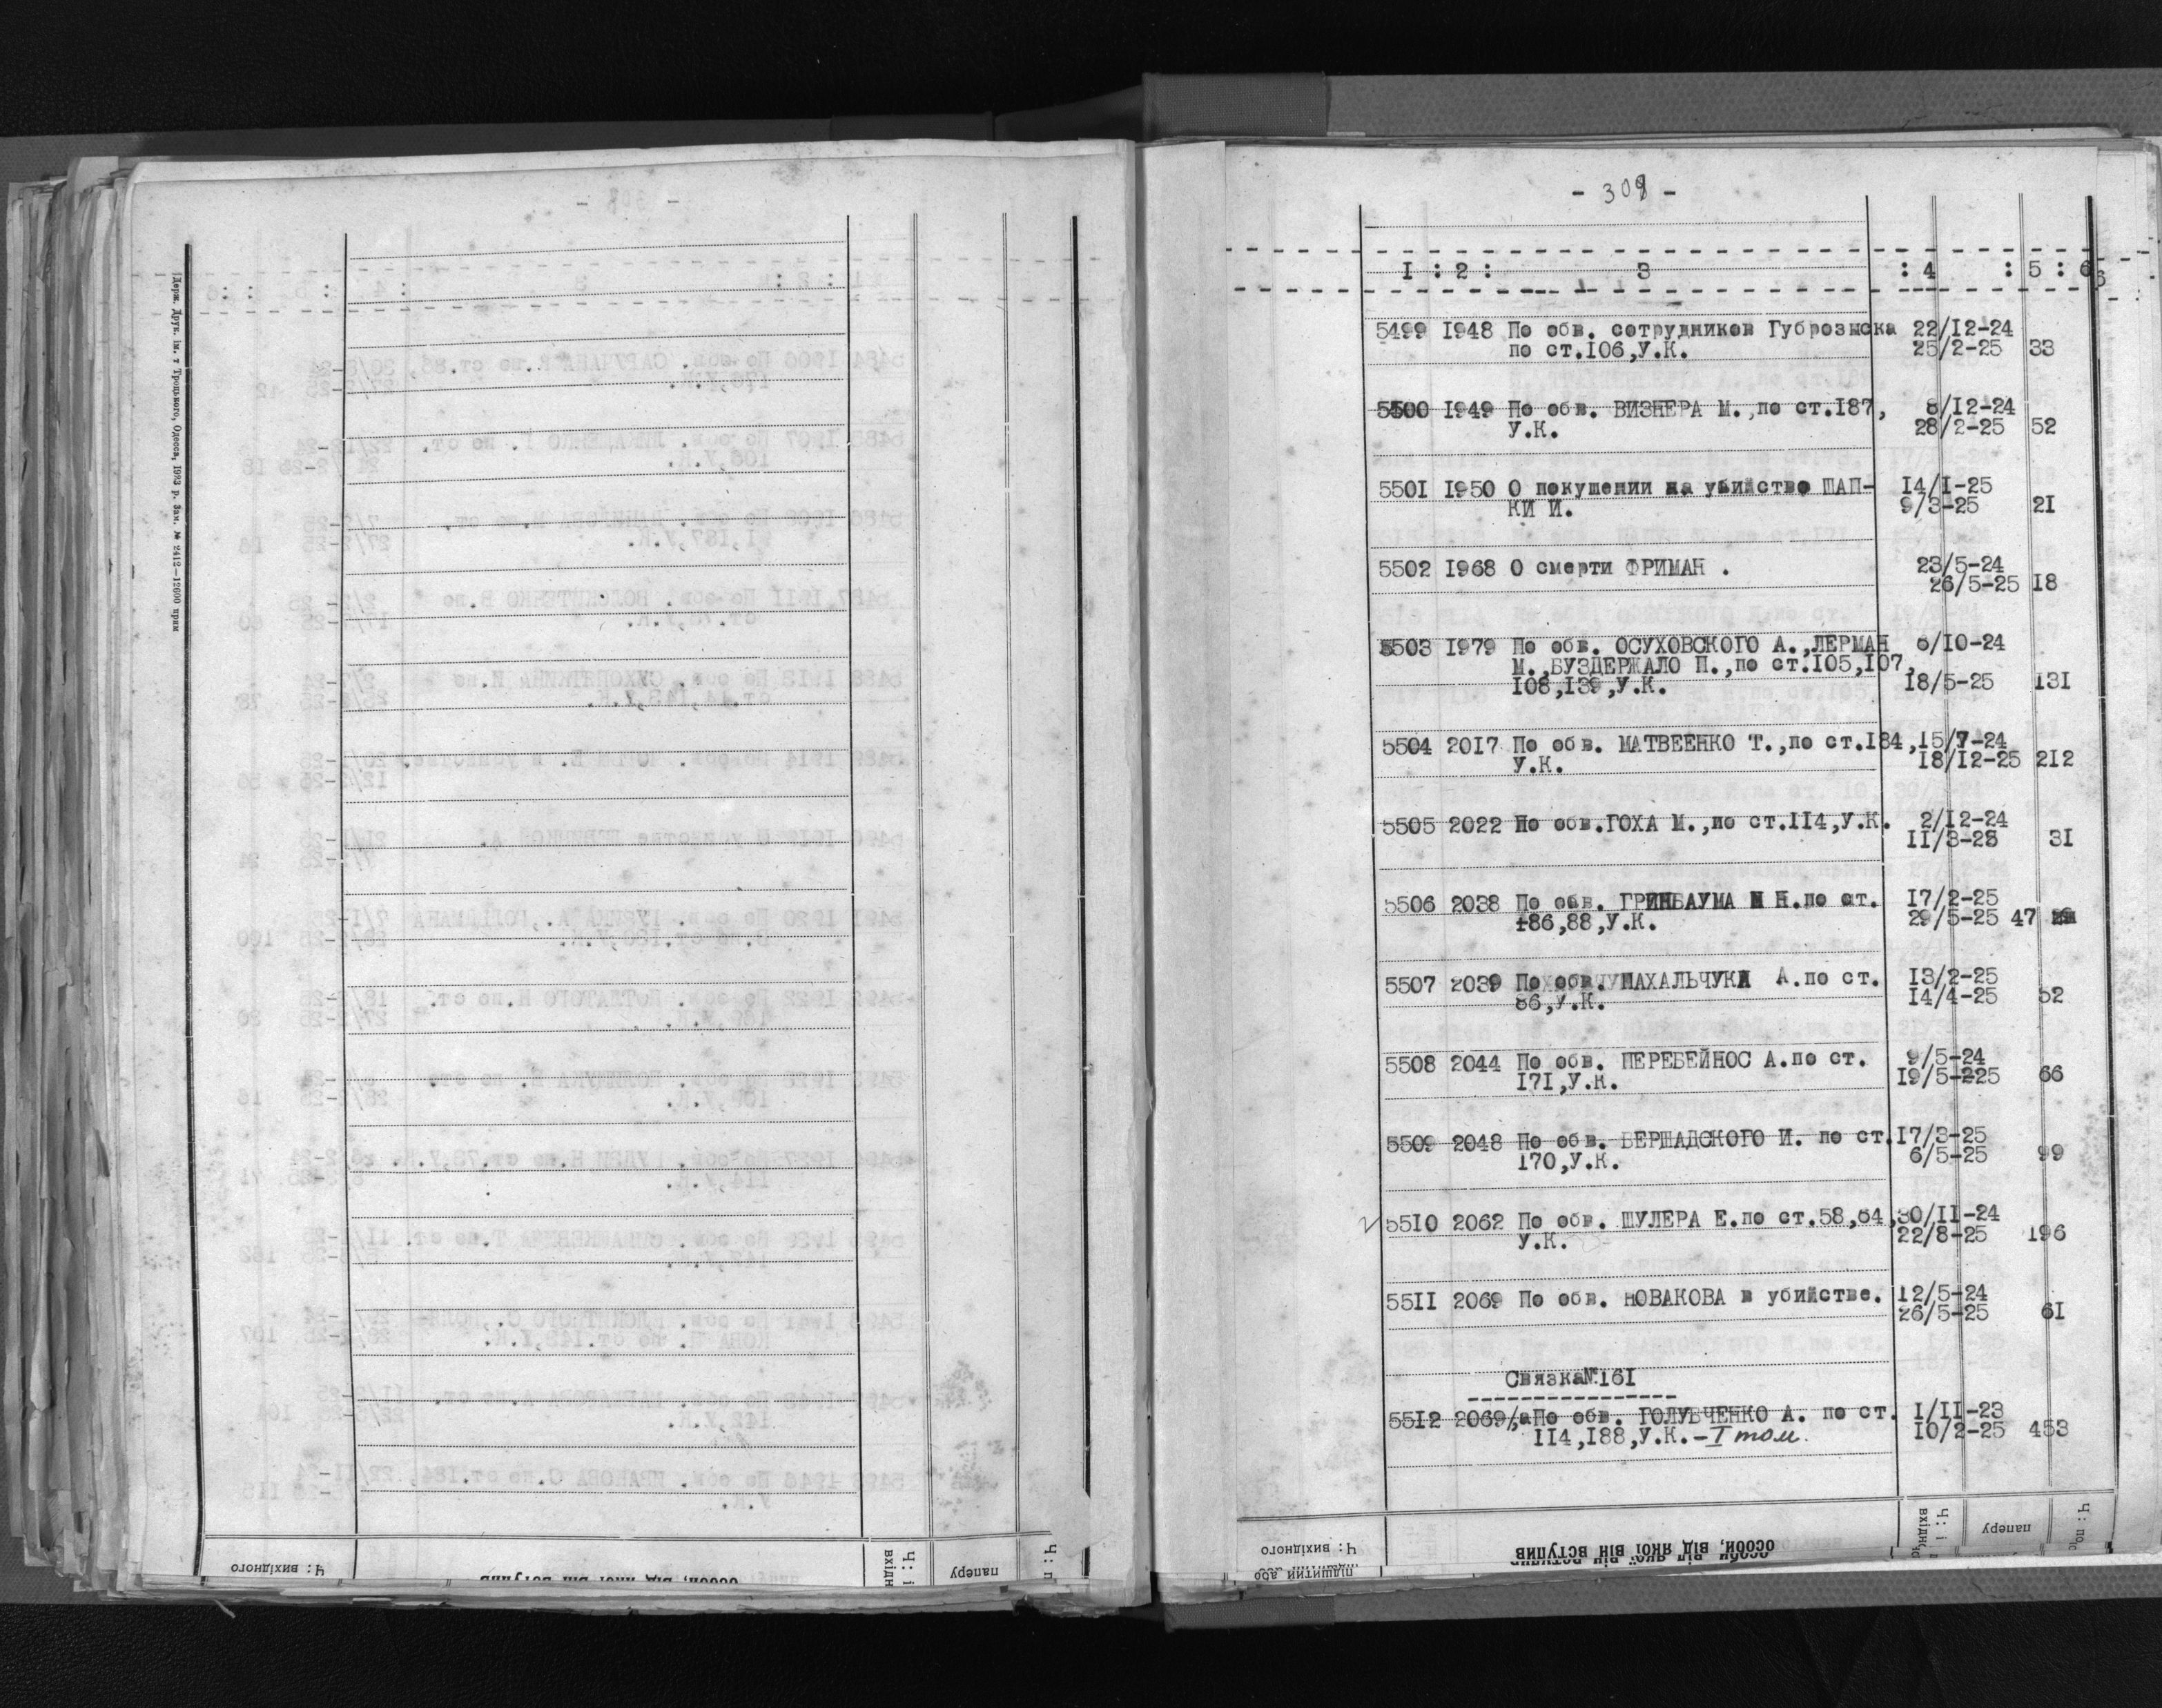 Держ. Друк. ім. т Троцького, Одеса, 1923 р. Зам. № 2412—12600 прим
Ч: вихідного
особи, від якої він вступив
паперу
- 309 -
1 : 2 : 3 : 4 : 5 : 6
5499 1948 По обв. сотрудников Губрозыска 22/12-24
по ст.106,У.К. 25/2-25 33
5500 1949 По обв. ВИЗНЕРА М.,по ст.187, 8/12-24
У.К. 28/2-25 52
5501 1950 О покушении на убийство ШАП- 14/1-25
КИ И. 9/3-25 21
5502 1968 О смерти ФРИМАН . 23/5-24
26/5-25 18
5503 1979 По обв. ОСУХОВСКОГО А.,ЛЕРМАН 6/10-24
М.,БУЗДЕРЖАЛО П.,по ст.105,107,
108,139,У.К. 18/5-25 131
5504 2017 По обв. МАТВЕЕНКО Т.,по ст.184, 15/7-24
У.К. 18/12-25 212
5505 2022 По обв.ГОХА М.,по ст.114,У.К. 2/12-24
11/3-25 31
5506 2038 По обв. ГРИНБАУМА Н.по ст. 17/2-25
86,88,У.К. 29/5-25 47
5507 2039 По обв. МАХАЛЬЧУКА А.по ст. 13/2-25
86,У.К. 14/4-25 52
5508 2044 По обв. ПЕРЕБЕЙНОС А.по ст. 9/5-24
171,У.К. 19/5-25 66
5509 2048 По обв. БЕРШАДСКОГО И. по ст. 17/3-25
170,У.К. 6/5-25 99
5510 2062 По обв. ШУЛЕРА Е.по ст.58,64, 30/11-24
У.К. 22/8-25 196
5511 2069 По обв. НОВАКОВА в убийстве. 12/5-24
26/5-25 61
Связка№161
5512 2069/а По обв. ГОЛУБЧЕНКО А. по ст. 1/11-23
114,188,У.К.-I том. 10/2-25 453
Ч: вихідного
підшитий або
особи, від якої він вступив
паперу